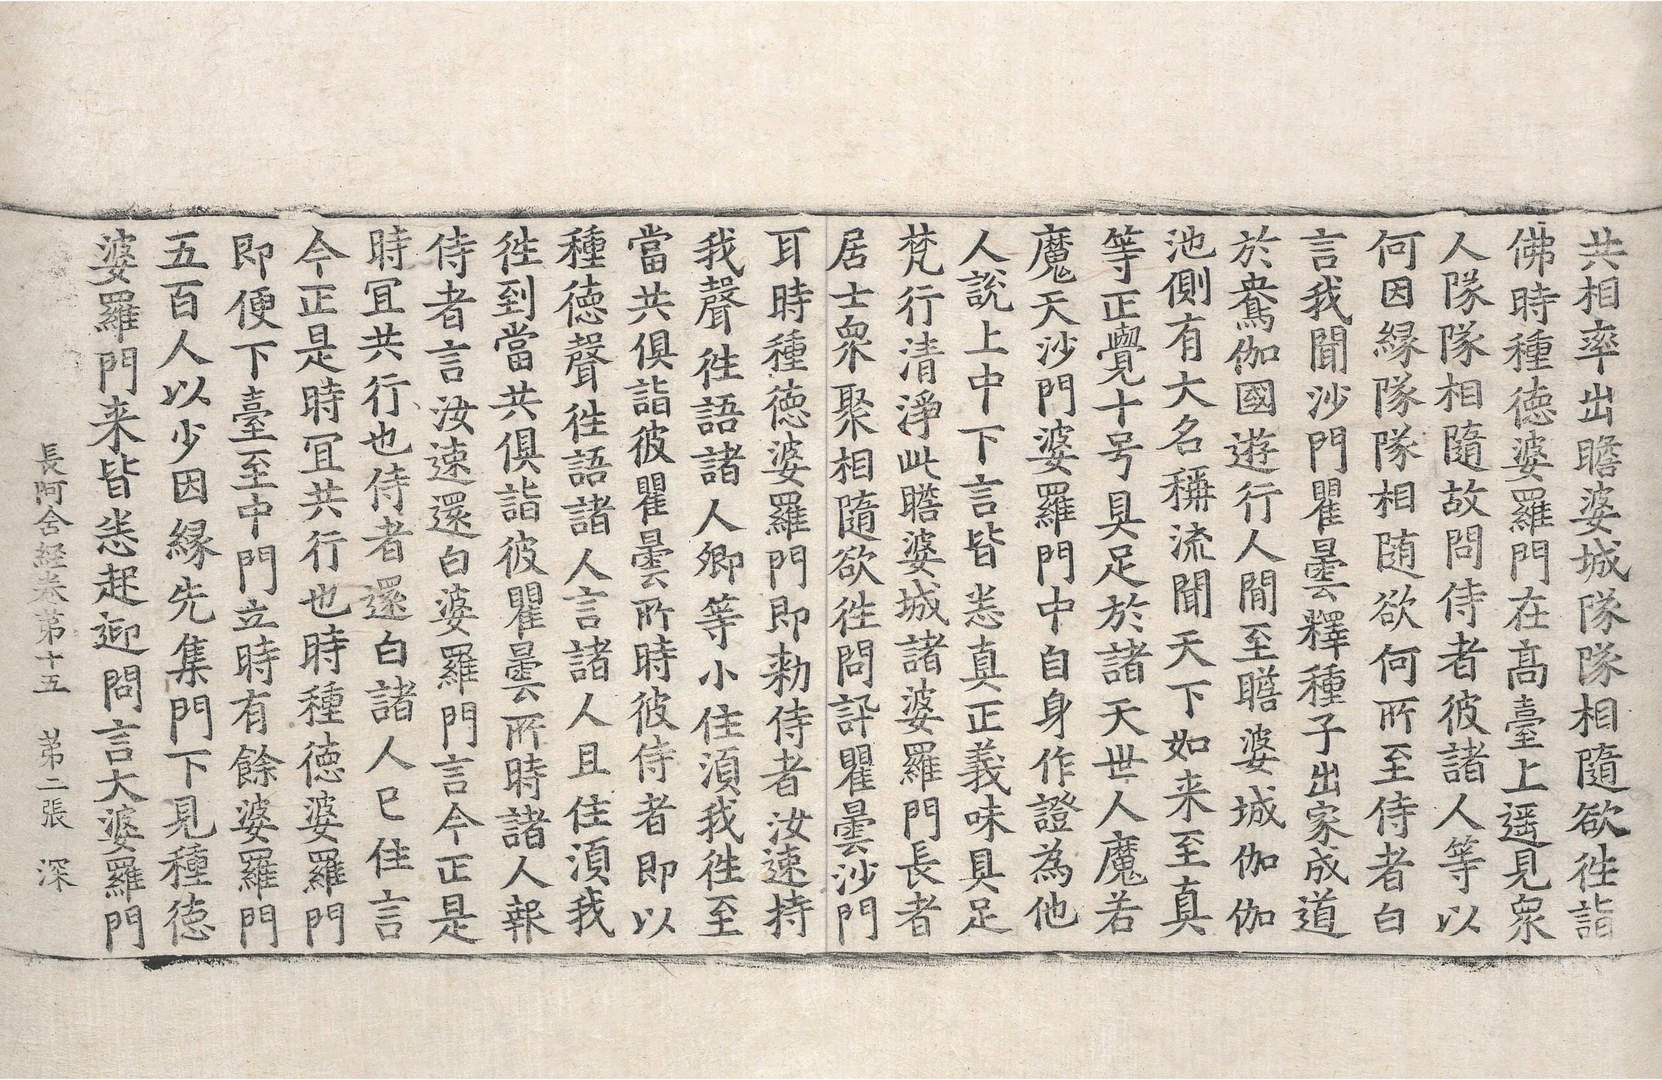 共相率出瞻婆城隊隊相隨欲往詣
佛時種德婆羅門在高臺上遥見衆
人隊隊相隨故問侍者彼諸人等以
何因緣隊隊相随欲何所至侍者白
言我聞沙門瞿曇釋種子出家成道
於鴦伽國遊行人間至瞻婆城伽伽
池側有大名稱流聞天下如来至真
等正覺十号具足於諸天世人魔若
魔天沙門婆羅門中自身作證為他
人說上中下言皆悉真正義味具足
梵行清淨此瞻婆城諸婆羅門長者
居士衆聚相隨欲往問訊瞿曇沙門
耳時種德婆羅門即勑侍者汝速持
我聲往語諸人卿等小住湏我往至
當共俱詣彼瞿曇所時彼侍者即以
種德聲往語諸人言諸人且住湏我
往到當共俱詣彼瞿曇所時諸人報
侍者言汝速還白婆羅門言今正是
時冝共行也侍者還白諸人已住言
今正是時冝共行也時種德婆羅門
即便下臺至中門立時有餘婆羅門
五百人以少因緣先集門下見種德
婆羅門来皆悉起迎問言大婆羅門
長阿含経卷第十五 第二張 深